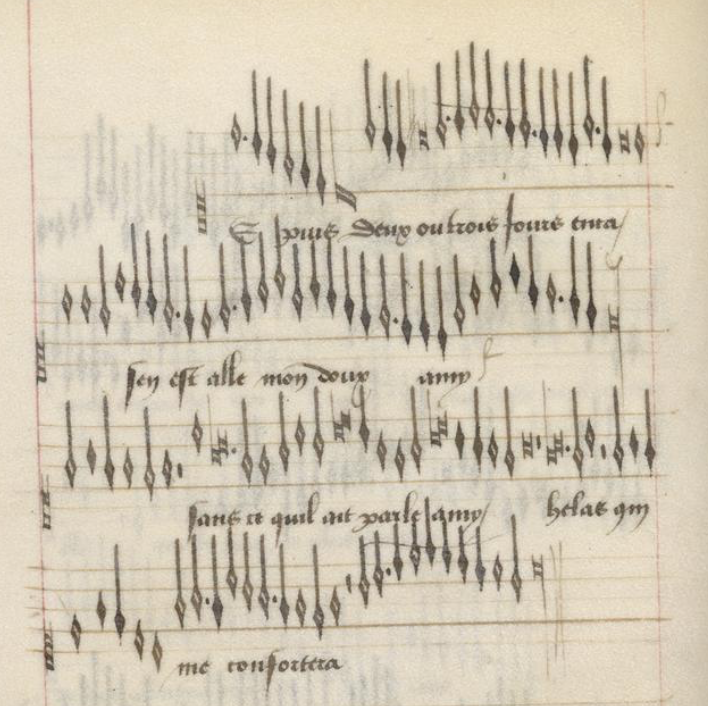 Epuis deux ou trois jours enca
sen est alle mon doux amy
sans ce quil ait parle / amy helas qui
me confortera